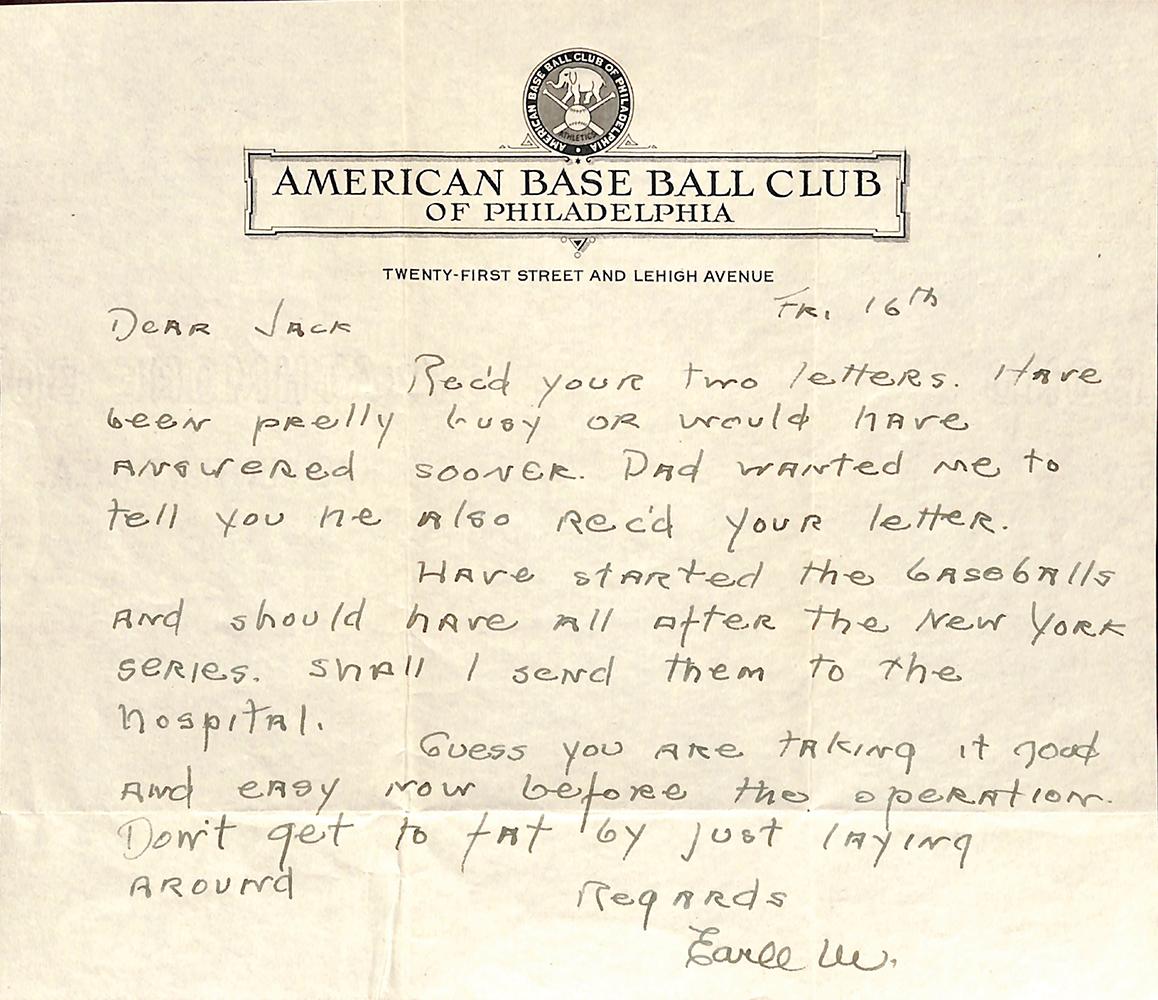 AMERICAN BASE BALL CLUB OF PHILADELPHIA
ATHLETICS
AMERICAN BASE BALL CLUB
OF PHILADELPHIA
TWENTY-FIRST STREET AND LEHIGH AVENUE
Fri. 16th
Dear Jack
Rec'd your two letters. Have
been pretty busy or would have
answered sooner. Dad wanted me to
tell you he also rec'd your letter.
Have started the baseballs
and should have all after the New York
series. Shall I send them to the
hospital.
Guess you are taking it good
and easy now before the operation.
Don't get to fat by just laying
around
Regards
Earle M.